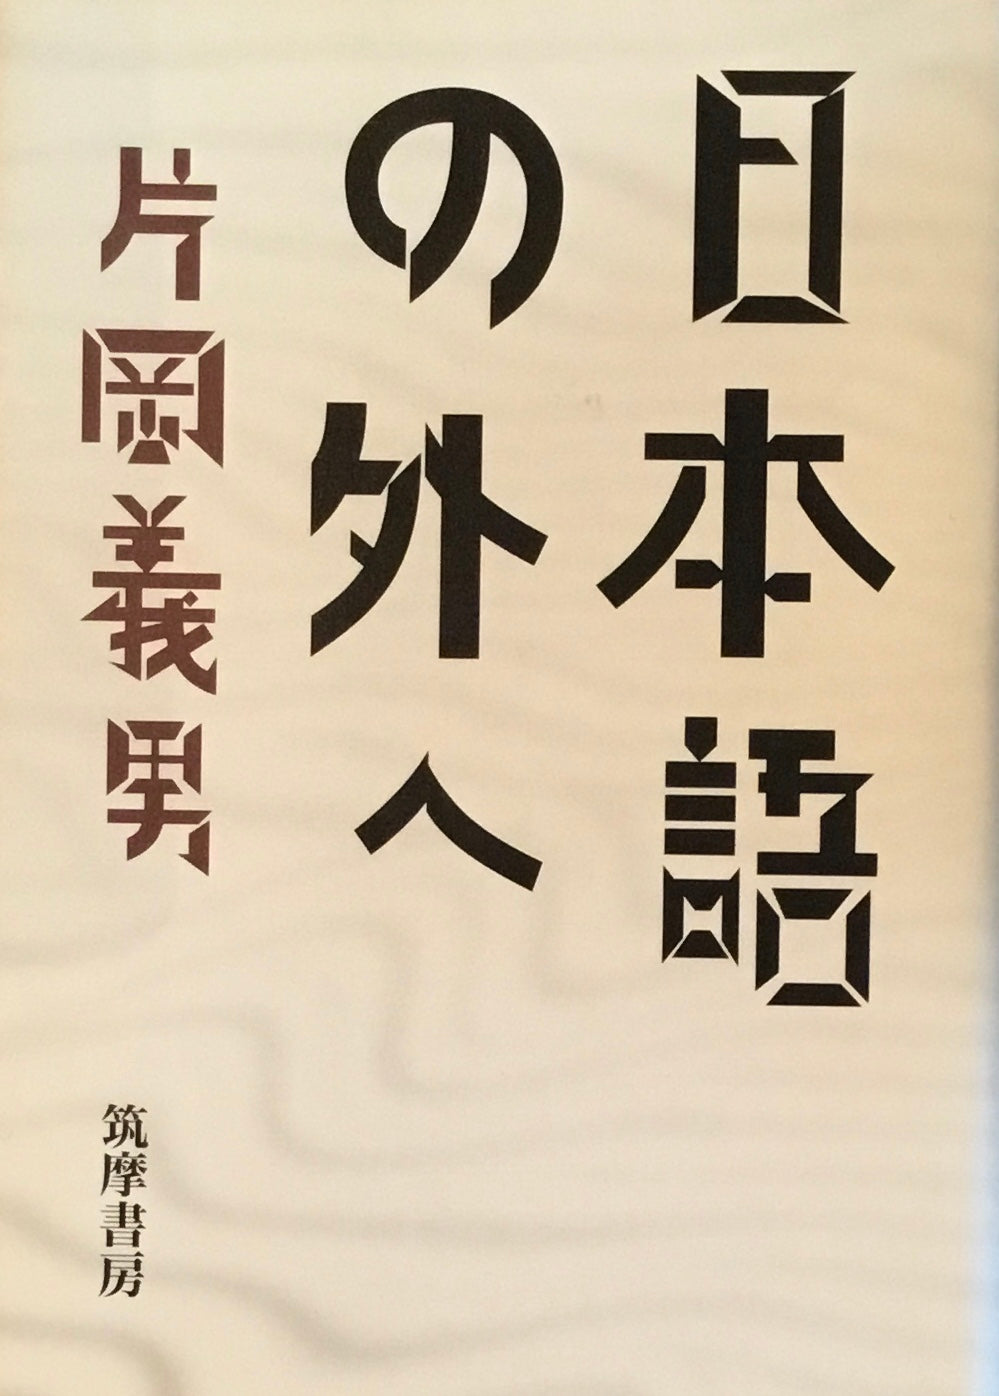 日本語
の外へ
片岡義男
筑摩書房